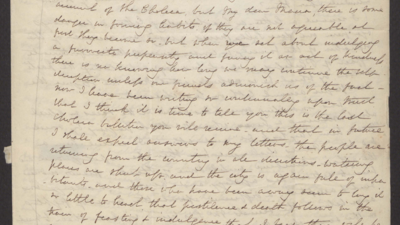 account of the Cholera. but My dear Maria there is some
danger in forming habits if they are not agreeable at
first they become so, but when we set about indulging
a favorite propensity and fancy it an act of kindness
there is no knowing how long we may continue the self
deception unless our friends admonish us of the fact -
now I have been writing on continually upon
that I think it is time to tell you this is the last
cholera bulletin you will receive. and that in future
I shall expect answers to my letters. the people are
returning from the country in all directions. watering
places are shut up, and the city is again full of inhabi
tants. and those who have been away seem to
so little to heed that pestilence & death follow in the
train of feasting & indulgence that I